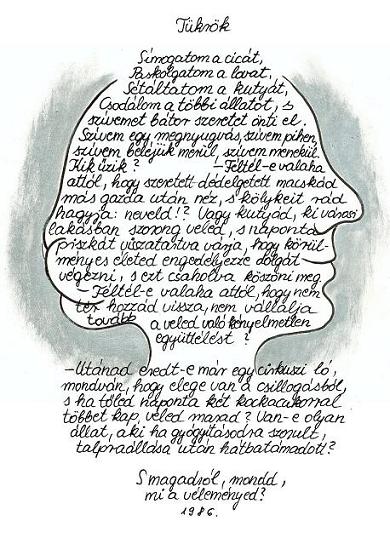 Tükrök
Simogatom a cicát,
Paskolgatom a lovat,
Sétáltatom a kutyát,
Csodálom a többi állatot, s
szivemet bátor szeretet önti el.
Szivem egy megnyugvás, szivem pihen,
szivem beléjük merül, szivem menekül.
Kik űzik? –Féltél-e valaha
attól, hogy szeretett-dédelgetett macskád
más gazda után néz, s kölykeit rád
hagyja: neveld!? Vagy kutyád, ki városi
lakásban szorong veled, s naponta
priszkát vizaztatva várja, hogy körül-
ményes életed engedélyezze dolgát
végezni, s ezt csaholva köszöni meg.
–Féltél-e valaha attól, hogy nem
tér hozzád vissza, nem vállalja
tovább a veled való kényelmetlen
együttélést?
–Utánad eredt-e már egy cirkuszi ló,
mondván, hogy elege van a csillogásból,
s ha tőled naponta két kockacukorral
többet kap, veled marad? Van-e olyan
állat, aki ha gyógyításodra szorult,
talpraállása után hátbatámadott?
S magadról, mondd,
mi a véleményed?
1986.